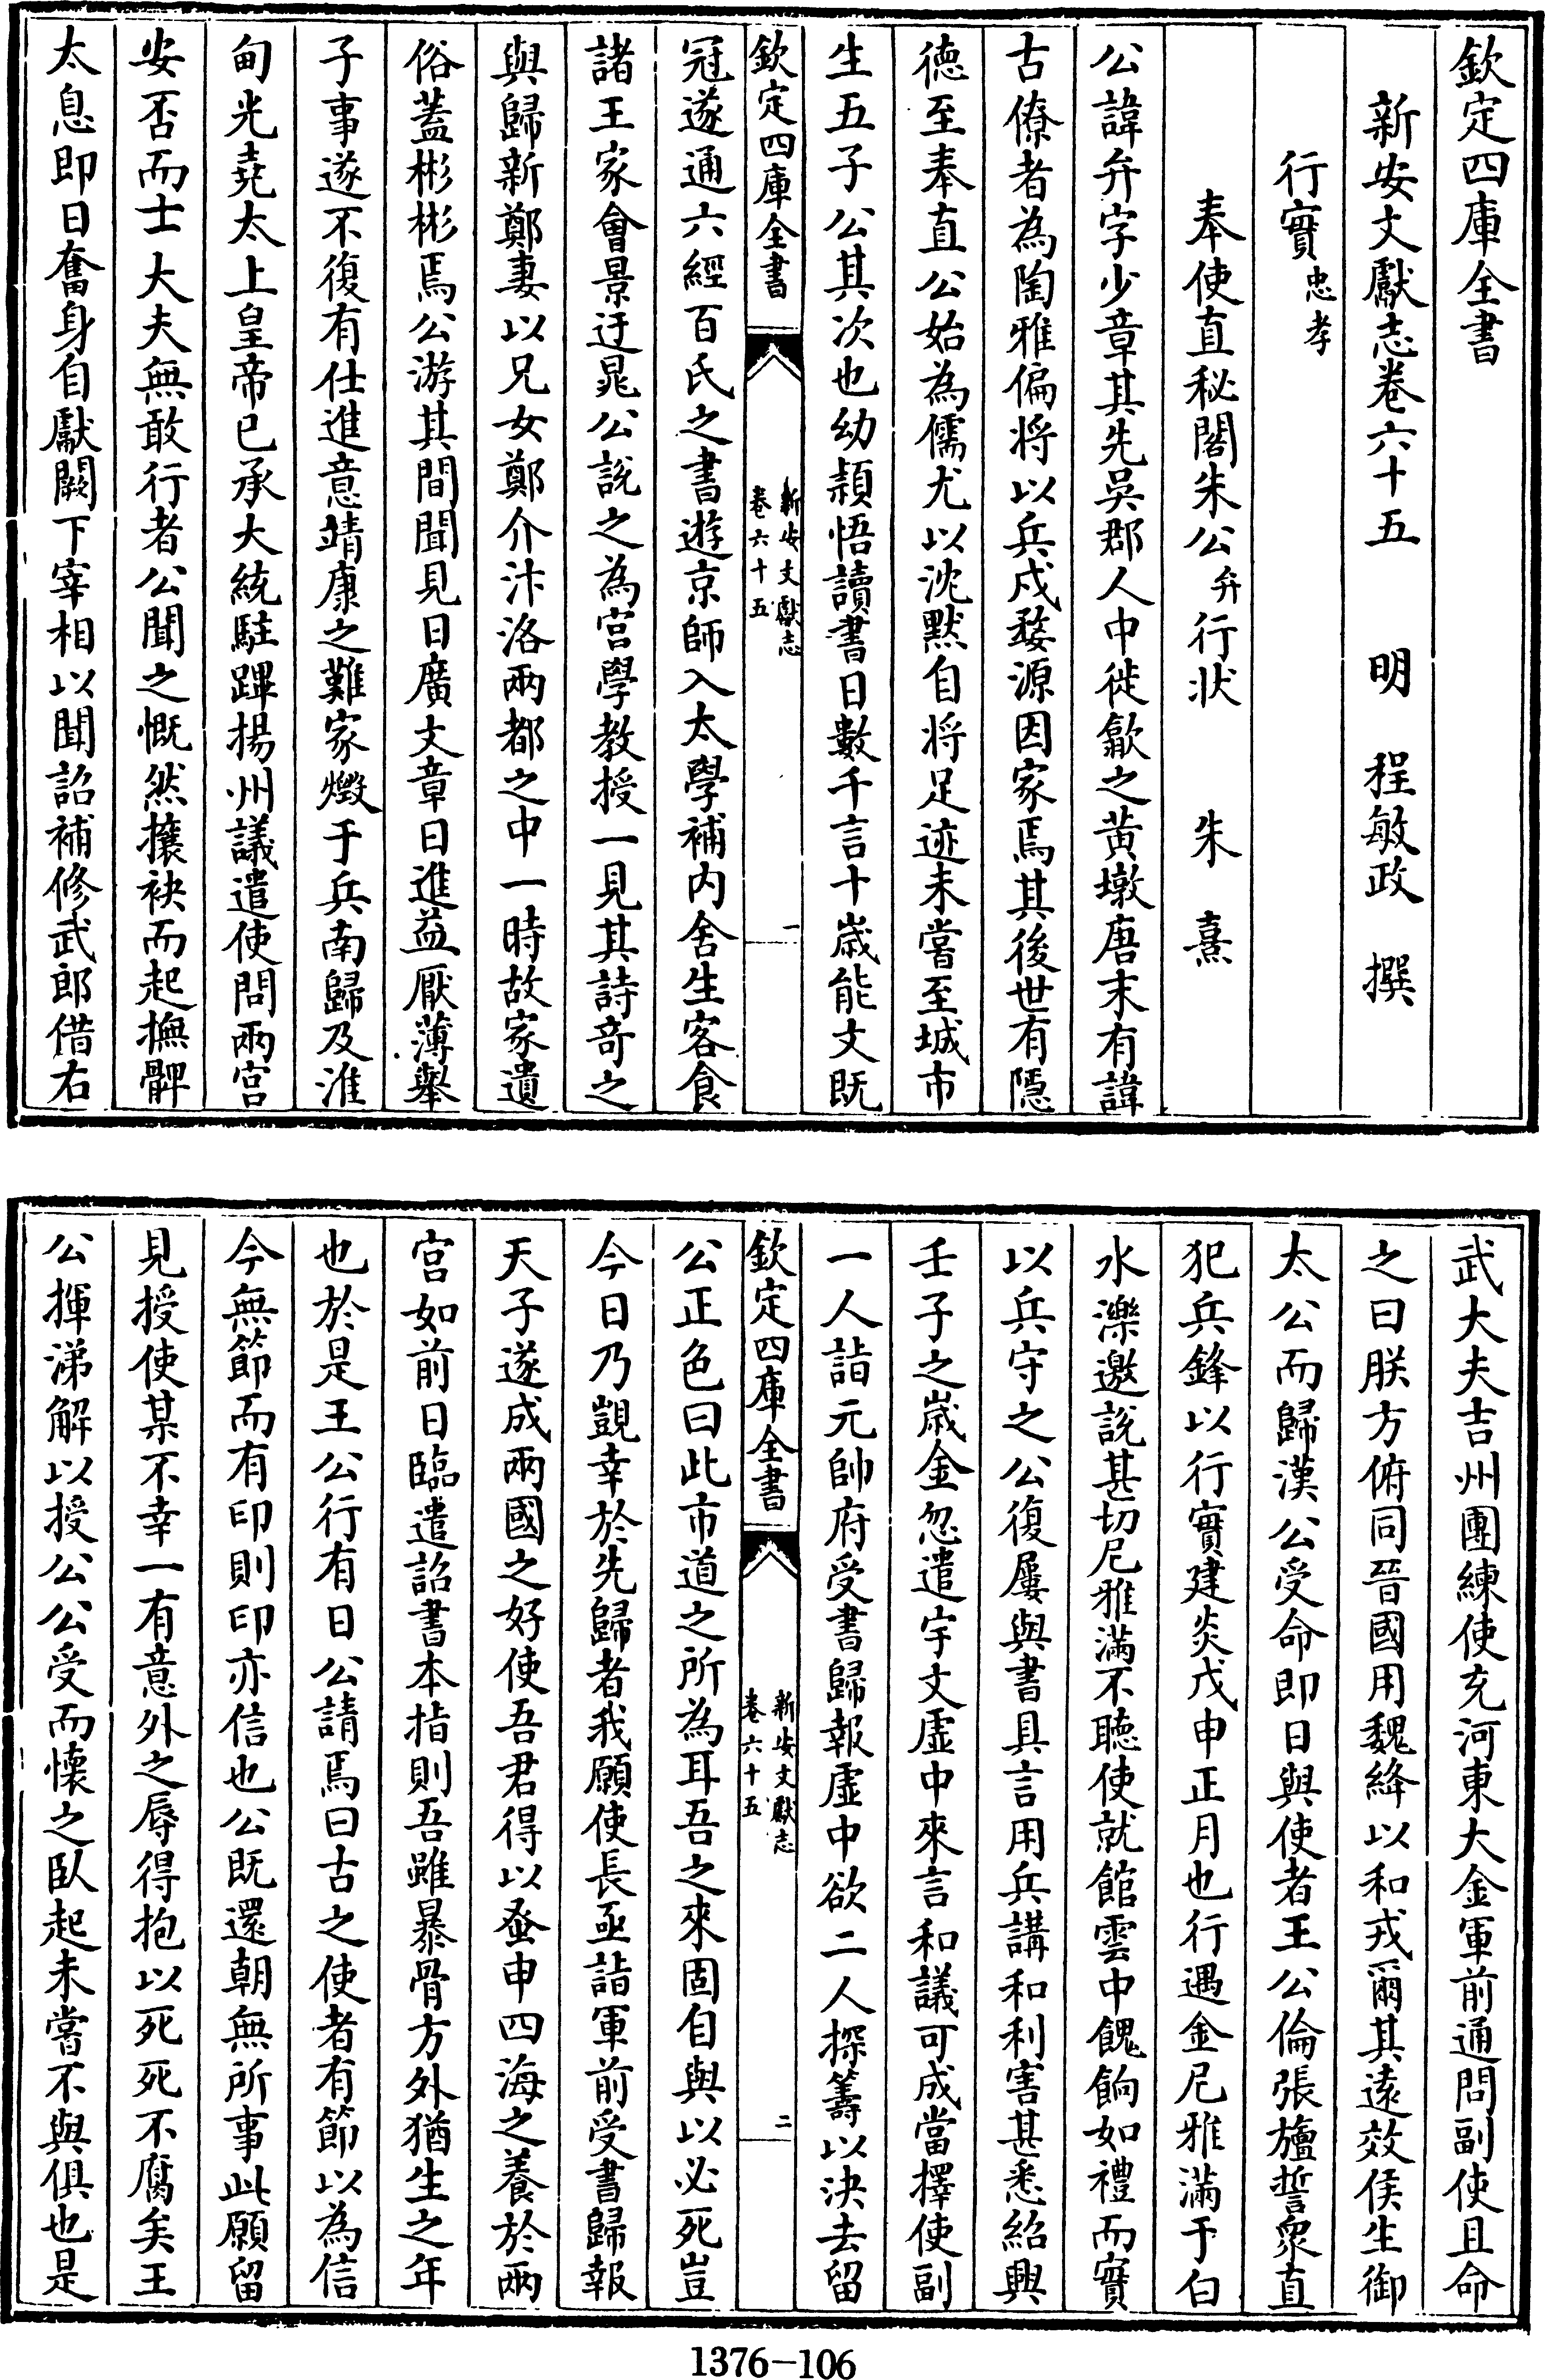 欽定四庫全書
新安文獻志卷六十五　明　程敏政　撰
行實忠孝
奉使直秘閣朱公弁行狀　朱熹
公諱弁字少章其先吳郡人中徙歙之黃墩唐末有諱
古僚者為陶雅偏將以兵戍婺源因家焉其後世有隱
德至奉直公始為儒尤以沈默自將足迹未嘗至城市
生五子公其次也幼穎悟讀書日數千言十歲能文既
欽定四庫全書
新安文獻志
卷六十五
一
冠遂通六經百氏之書遊京師入太學補內舍生客食
諸王家會景迂晁公說之為宮學教授一見其詩奇之
與歸新鄭妻以兄女鄭介汴洛兩都之中一時故家遺
俗蓋彬彬焉公游其間聞見日廣文章日進益厭薄舉
子事遂不復有仕進意靖康之難家燬于兵南歸及淮
甸光堯太上皇帝已承大統駐蹕揚州議遣使問兩宮
安否而士大夫無敢行者公聞之慨然攘袂而起撫髀
太息即日奮身自獻闕下宰相以聞詔補修武郎借右
武大夫吉州團練使充河東大金軍前通問副使且命
之曰朕方俯同晉國用魏絳以和戎爾其遠效侯生御
太公而歸漢公受命即日與使者王公倫張旜誓衆直
犯兵鋒以行實建炎戊申正月也行遇金尼雅滿于白
水濼邀說甚切尼雅滿不聽使就館雲中餽餉如禮而實
以兵守之公復屢與書具言用兵講和利害甚悉紹興
壬子之歲金忽遣宇文虛中來言和議可成當擇使副
一人詣元帥府受書歸報虛中欲二人探籌以決去留
欽定四庫全書
新安文獻志
卷六十五
二
公正色曰此市道之所為耳吾之來固自與以必死豈
今日乃覬幸於先歸者我願使長亟詣軍前受書歸報
天子遂成兩國之好使吾君得以蚤申四海之養於兩
宮如前日臨遣詔書本指則吾雖暴骨方外猶生之年
也於是王公行有日公請焉曰古之使者有節以為信
今無節而有印則印亦信也公既還朝無所事此願留
見授使某不幸一有意外之辱得抱以死死不腐矣王
公揮涕解以授公公受而懷之臥起未嘗不與俱也是
1376-106